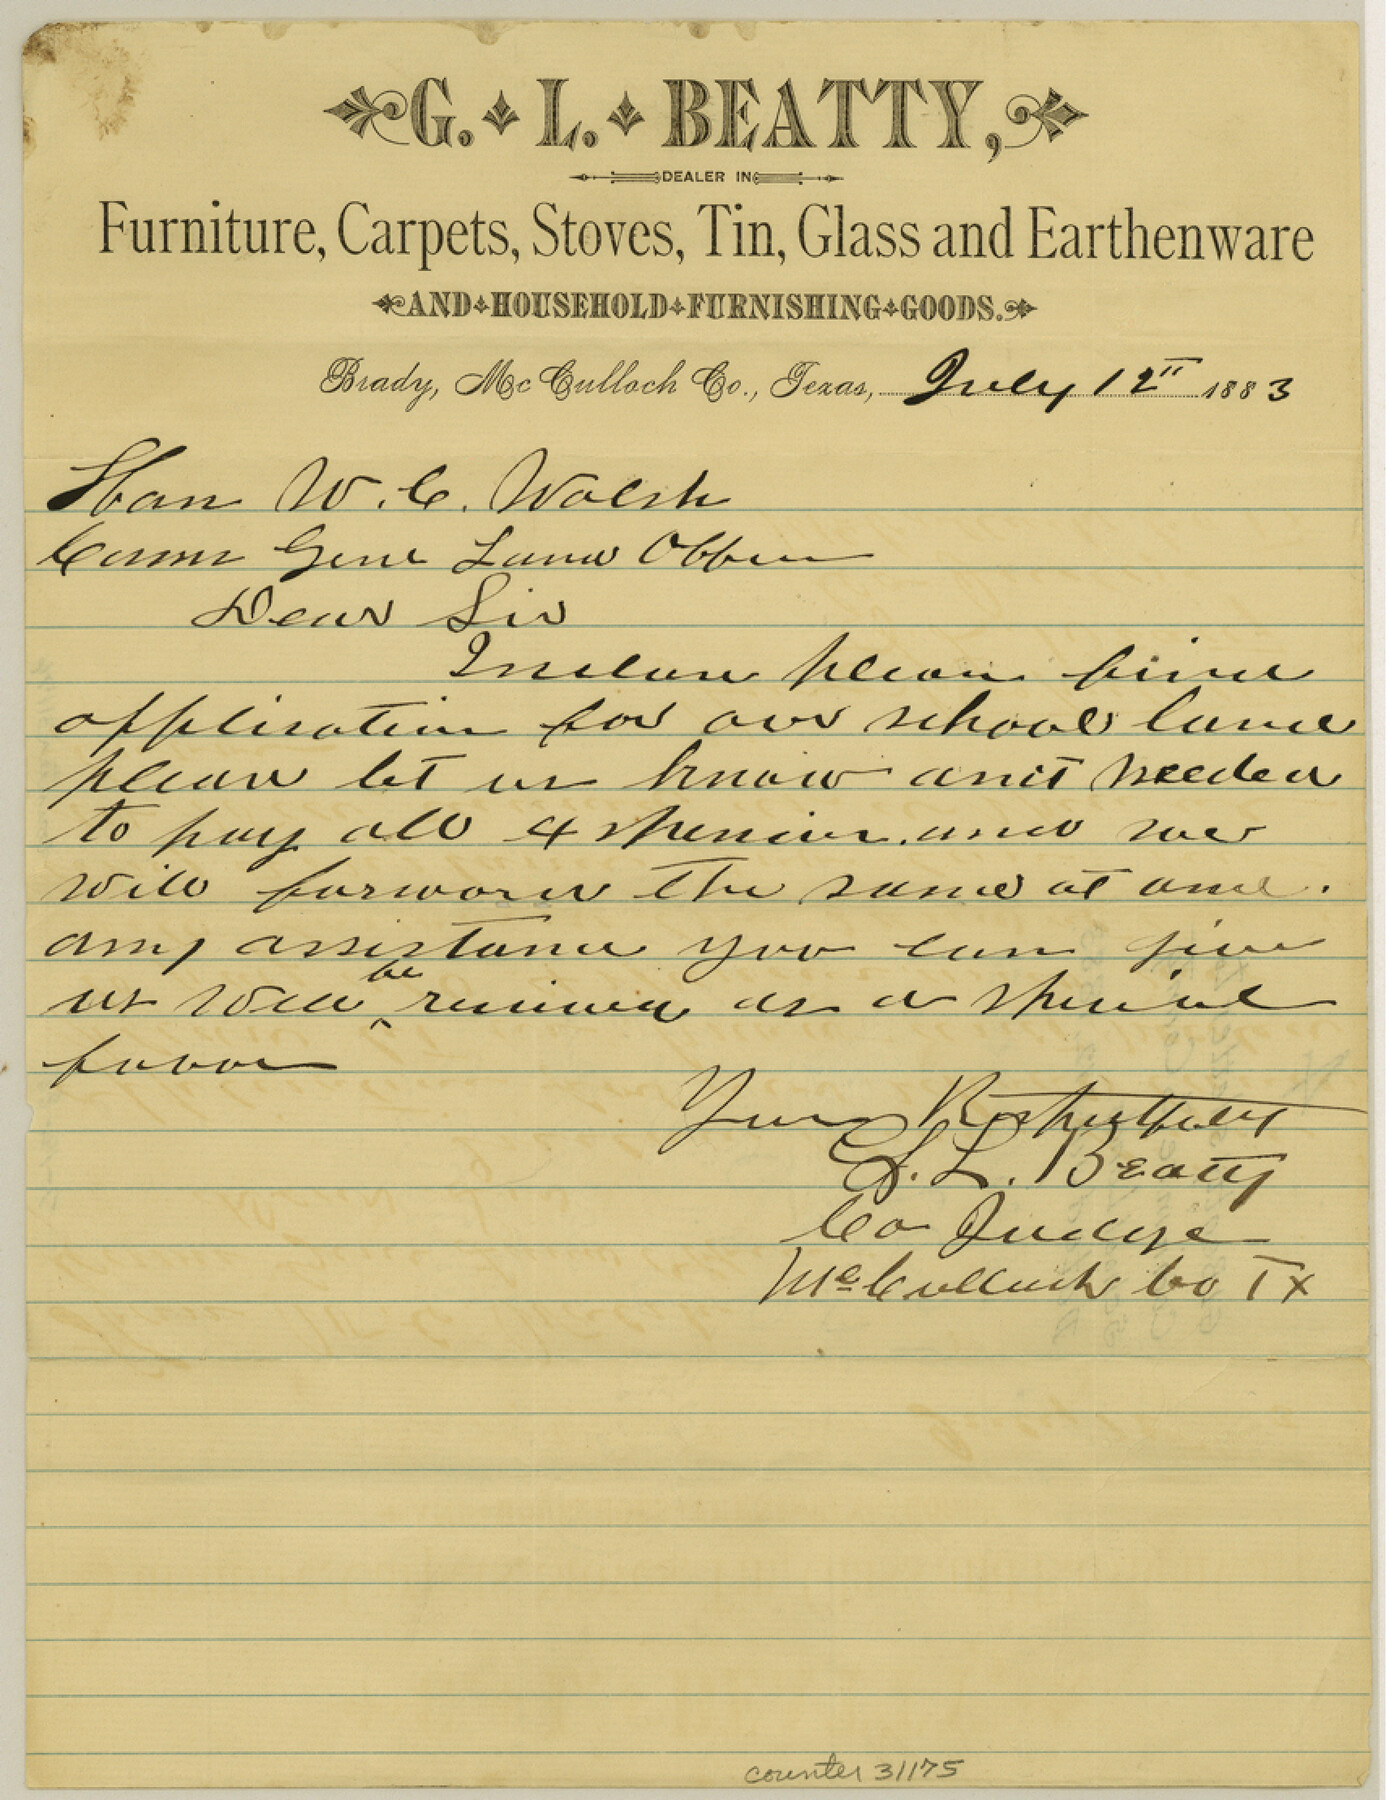 G. L. BEATTY,
DEALER IN
Furniture, Carpets, Stoves, Tin, Glass and Earthenware
AND HOUSEHOLD FURNISHING GOODS.
Brady, McCulloch Co., Texas, July 12" 1883
Hon W. C. Walsh
Comr Genl Land Office
Dear Sir
Inclose please find
application for our school land
please let us know amt needed
to pay all expenses. and we
will forward the same at once.
any assistance you can give
us will be received as a special
favor
Yours Respectfully
G. L. Beatty
Co Judge
McCulloch Co Tx
counter 31175